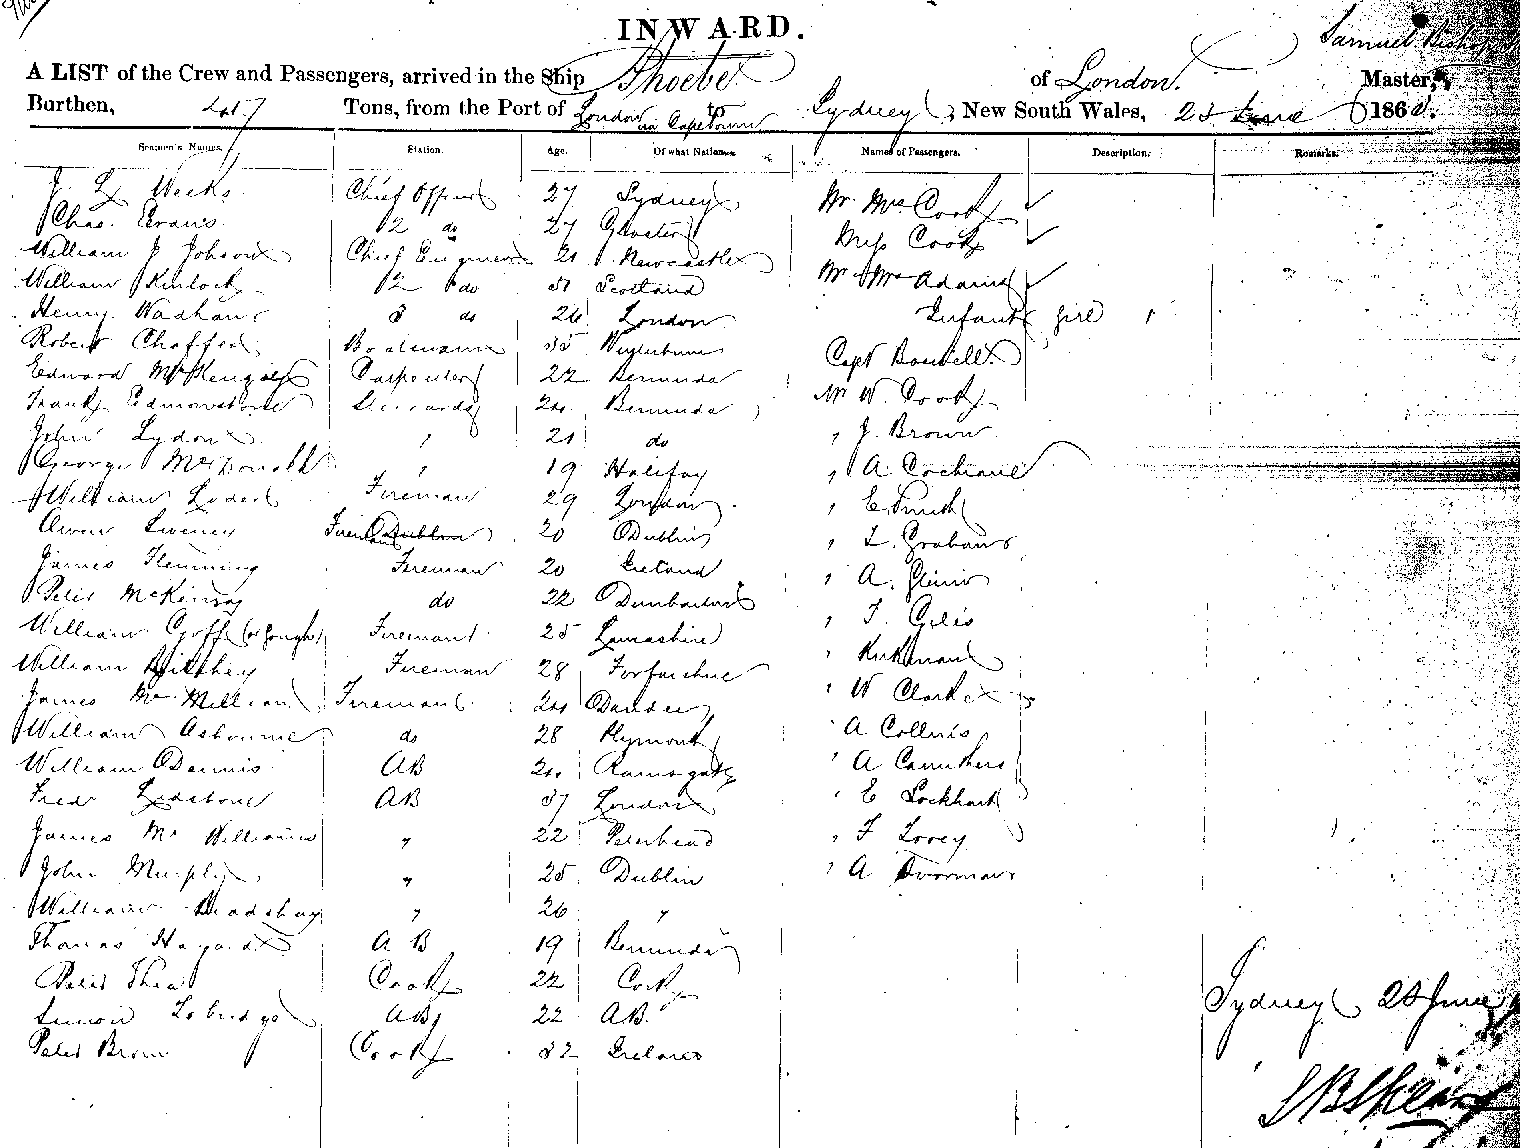 INWARD.
Samuel Bishop
A LIST of the Crew and Passengers, arrived in the Ship Phoebe of London. Master,
Burthen, 417 Tons, from the Port of London via Cape Town to Sydney, New South Wales, 23 June 186
Seamen's Names. Station. Age. Of what Nation. Names of Passengers. Description. Remarks.
J Weeks Chief Officer 27 Sydney Mr Mrs Cook
Chas. Evans 2 do 27 Gloster Miss Cook
William J Johson Chief Engineer 21 Newcastle
William Kinloch 2 do 31 Scotland Mr & Mrs Adams
Henry Wadham 3 do 26 London Infant girl 1
Robert Boatswain 35 Capt Boswell
Edward McKenzie Carpenter 22 Bermuda Mr W. Cook
Frank Edmonstone Stewards 24 Bermuda
John Lydon " 21 do " J. Brown
George McDonald " 19 Halifax " A Cochrane
William Fireman 29 London " E Smith
Owen Sweney Fireman 20 Dublin " Grahams
James Flemming Fireman 20 Ireland " A.
Peter McKenzy do 22 Dumbarton " F. Giles
William Goff (or Gough) Fireman 25 Lancashire " Kirkman
William Fireman 28 Forfarshire
James McMillian Fireman 24 Dundee " W Clarke
William Asbourne do 28 Plymouth " A Collins
William Dennis AB 24 Ramsgate " A Carruthers
Fredr Ledstone AB 37 London " E Lockhart
James Mc Williams " 22 Peterhead " F Lovey
John Murphy " 25 Dublin " A
William Bradshay " 26 "
Thomas AB 19 Bermuda
Peter Shea Cook 22 Cork
Simon AB 22 AB.
Peter Brown Cook 32 Ireland
Sydney 23 June